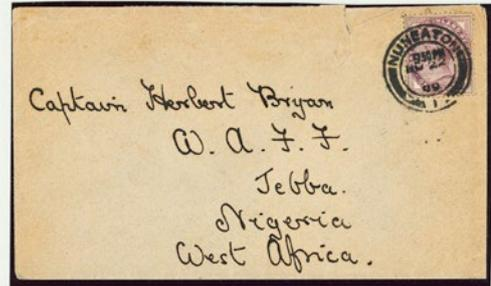 NUNEATON
9.30 PM
NO 22
99
1
Captain Herbert Bryan
W. A. F. F.
Jebba.
Nigeria
West Africa.